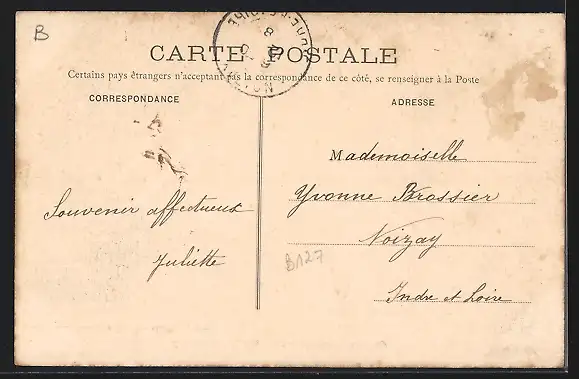 B
CARTE POSTALE
Certains pays étrangers n'acceptant pas la correspondance de ce côté, se renseigner à la Poste
CORRESPONDANCE
ADRESSE
Mademoiselle
Yvonne Brossier
Noizay
Indre et Loire
Souvenir affectueux
Juliette
B127